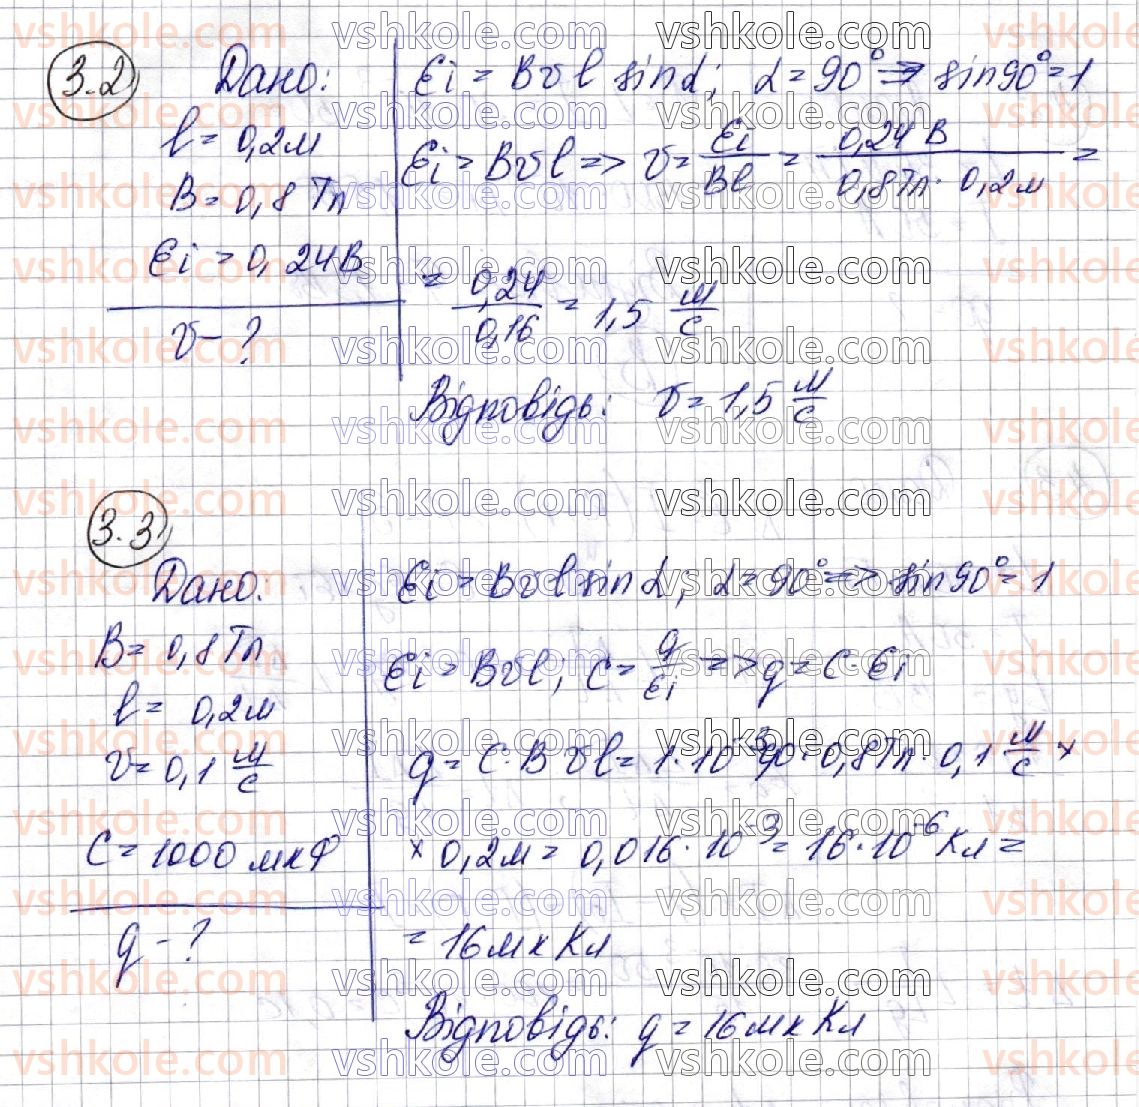 3.2 Дано:
l = 0,2 м
B = 0,8 Тл
Ei = 0,24 В
v - ?
Ei = Bvl sinα; α = 90° => sin90° = 1
Ei = Bvl => v = Ei/Bl = 0,24 В/0,8 Тл · 0,2 м =
= 0,24/0,16 = 1,5 м/с
Відповідь: v = 1,5 м/с
3.3
Дано:
B = 0,8 Тл
l = 0,2 м
v = 0,1 м/с
C = 1000 мкФ
q - ?
Ei = Bvl sinα; α = 90° => sin90° = 1
Ei = Bvl; C = q/Ei => q = C · Ei
q = C · Bvl = 1 · 10⁻³ Ф · 0,8 Тл · 0,1 м/с ×
× 0,2 м = 0,016 · 10⁻³ = 16 · 10⁻⁶ Кл =
= 16 мкКл
Відповідь: q = 16 мкКл
vshkole.com